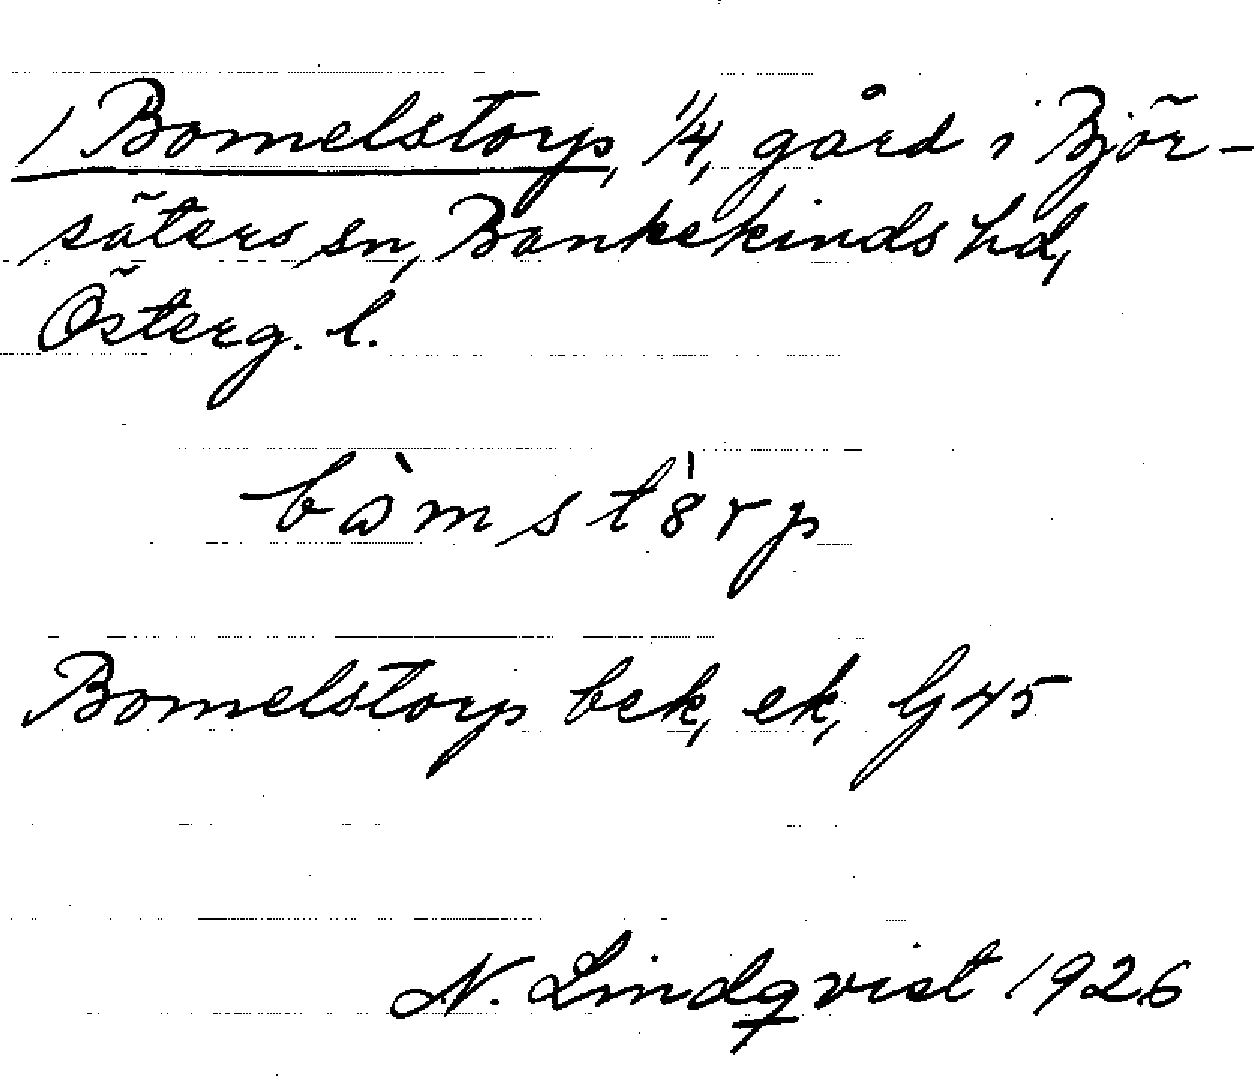 1 Bomelstorp, 1/4, gård i Björ-
säters sn, Bankekinds hd,
Österg. l.
Bomelstorp bek, ek, G 45
N. Lindqvist 1926